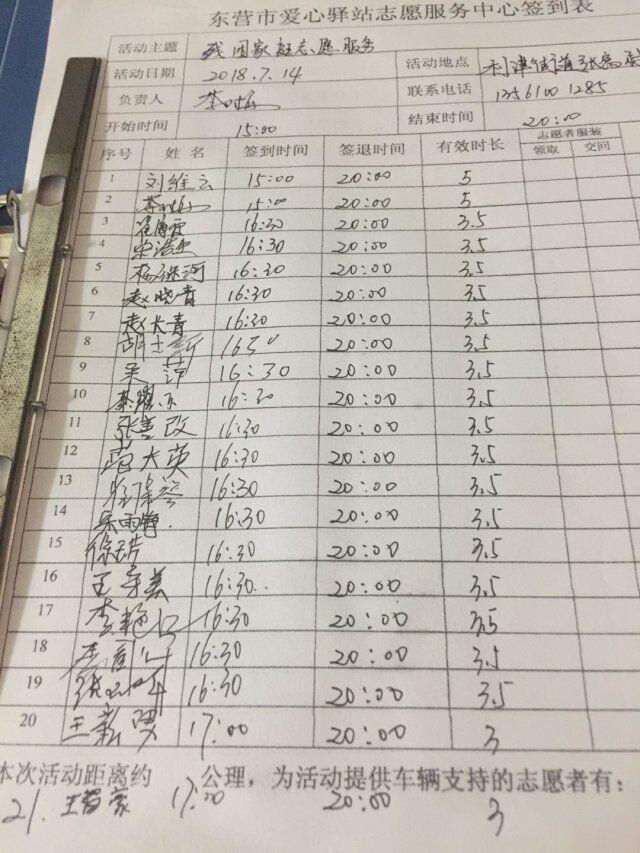 东营市爱心驿站志愿服务中心签到表
活动主题 残困家庭志愿服务
活动日期 2018.7.14 活动地点 利津街道张窝
负责人 联系电话 1356100 1285
开始时间 15:00 结束时间 20:00
序号 姓名 签到时间 签退时间 有效时长 志愿者服装
领取 交回
1 刘维云 15:00 20:00 5
2 15:00 20:00 5
3 16:30 20:00 3.5
4 16:30 20:00 3.5
5 16:30 20:00 3.5
6 赵晓青 16:30 20:00 3.5
7 赵大青 16:30 20:00 3.5
8 胡士新 1630 20:00 3.5
9 16:30 20:00 3.5
10 16:30 20:00 3.5
11 张善改 16:30 20:00 3.5
12 大英 16:30 20:00 3.5
13 16:30 20:00 3.5
14 宋雨静. 16:30 20:00 3.5
15 16:30 20:00 3.5
16 王 16:30.. 20:00 3.5
17 李艳 16:30 20:00 3.5
18 16:30 20:00 3.5
19 16:30 20:00 3.5
20 王 17:00 20:00 3
本次活动距离约 公理，为活动提供车辆支持的志愿者有：
21. 17:00 20:00 3